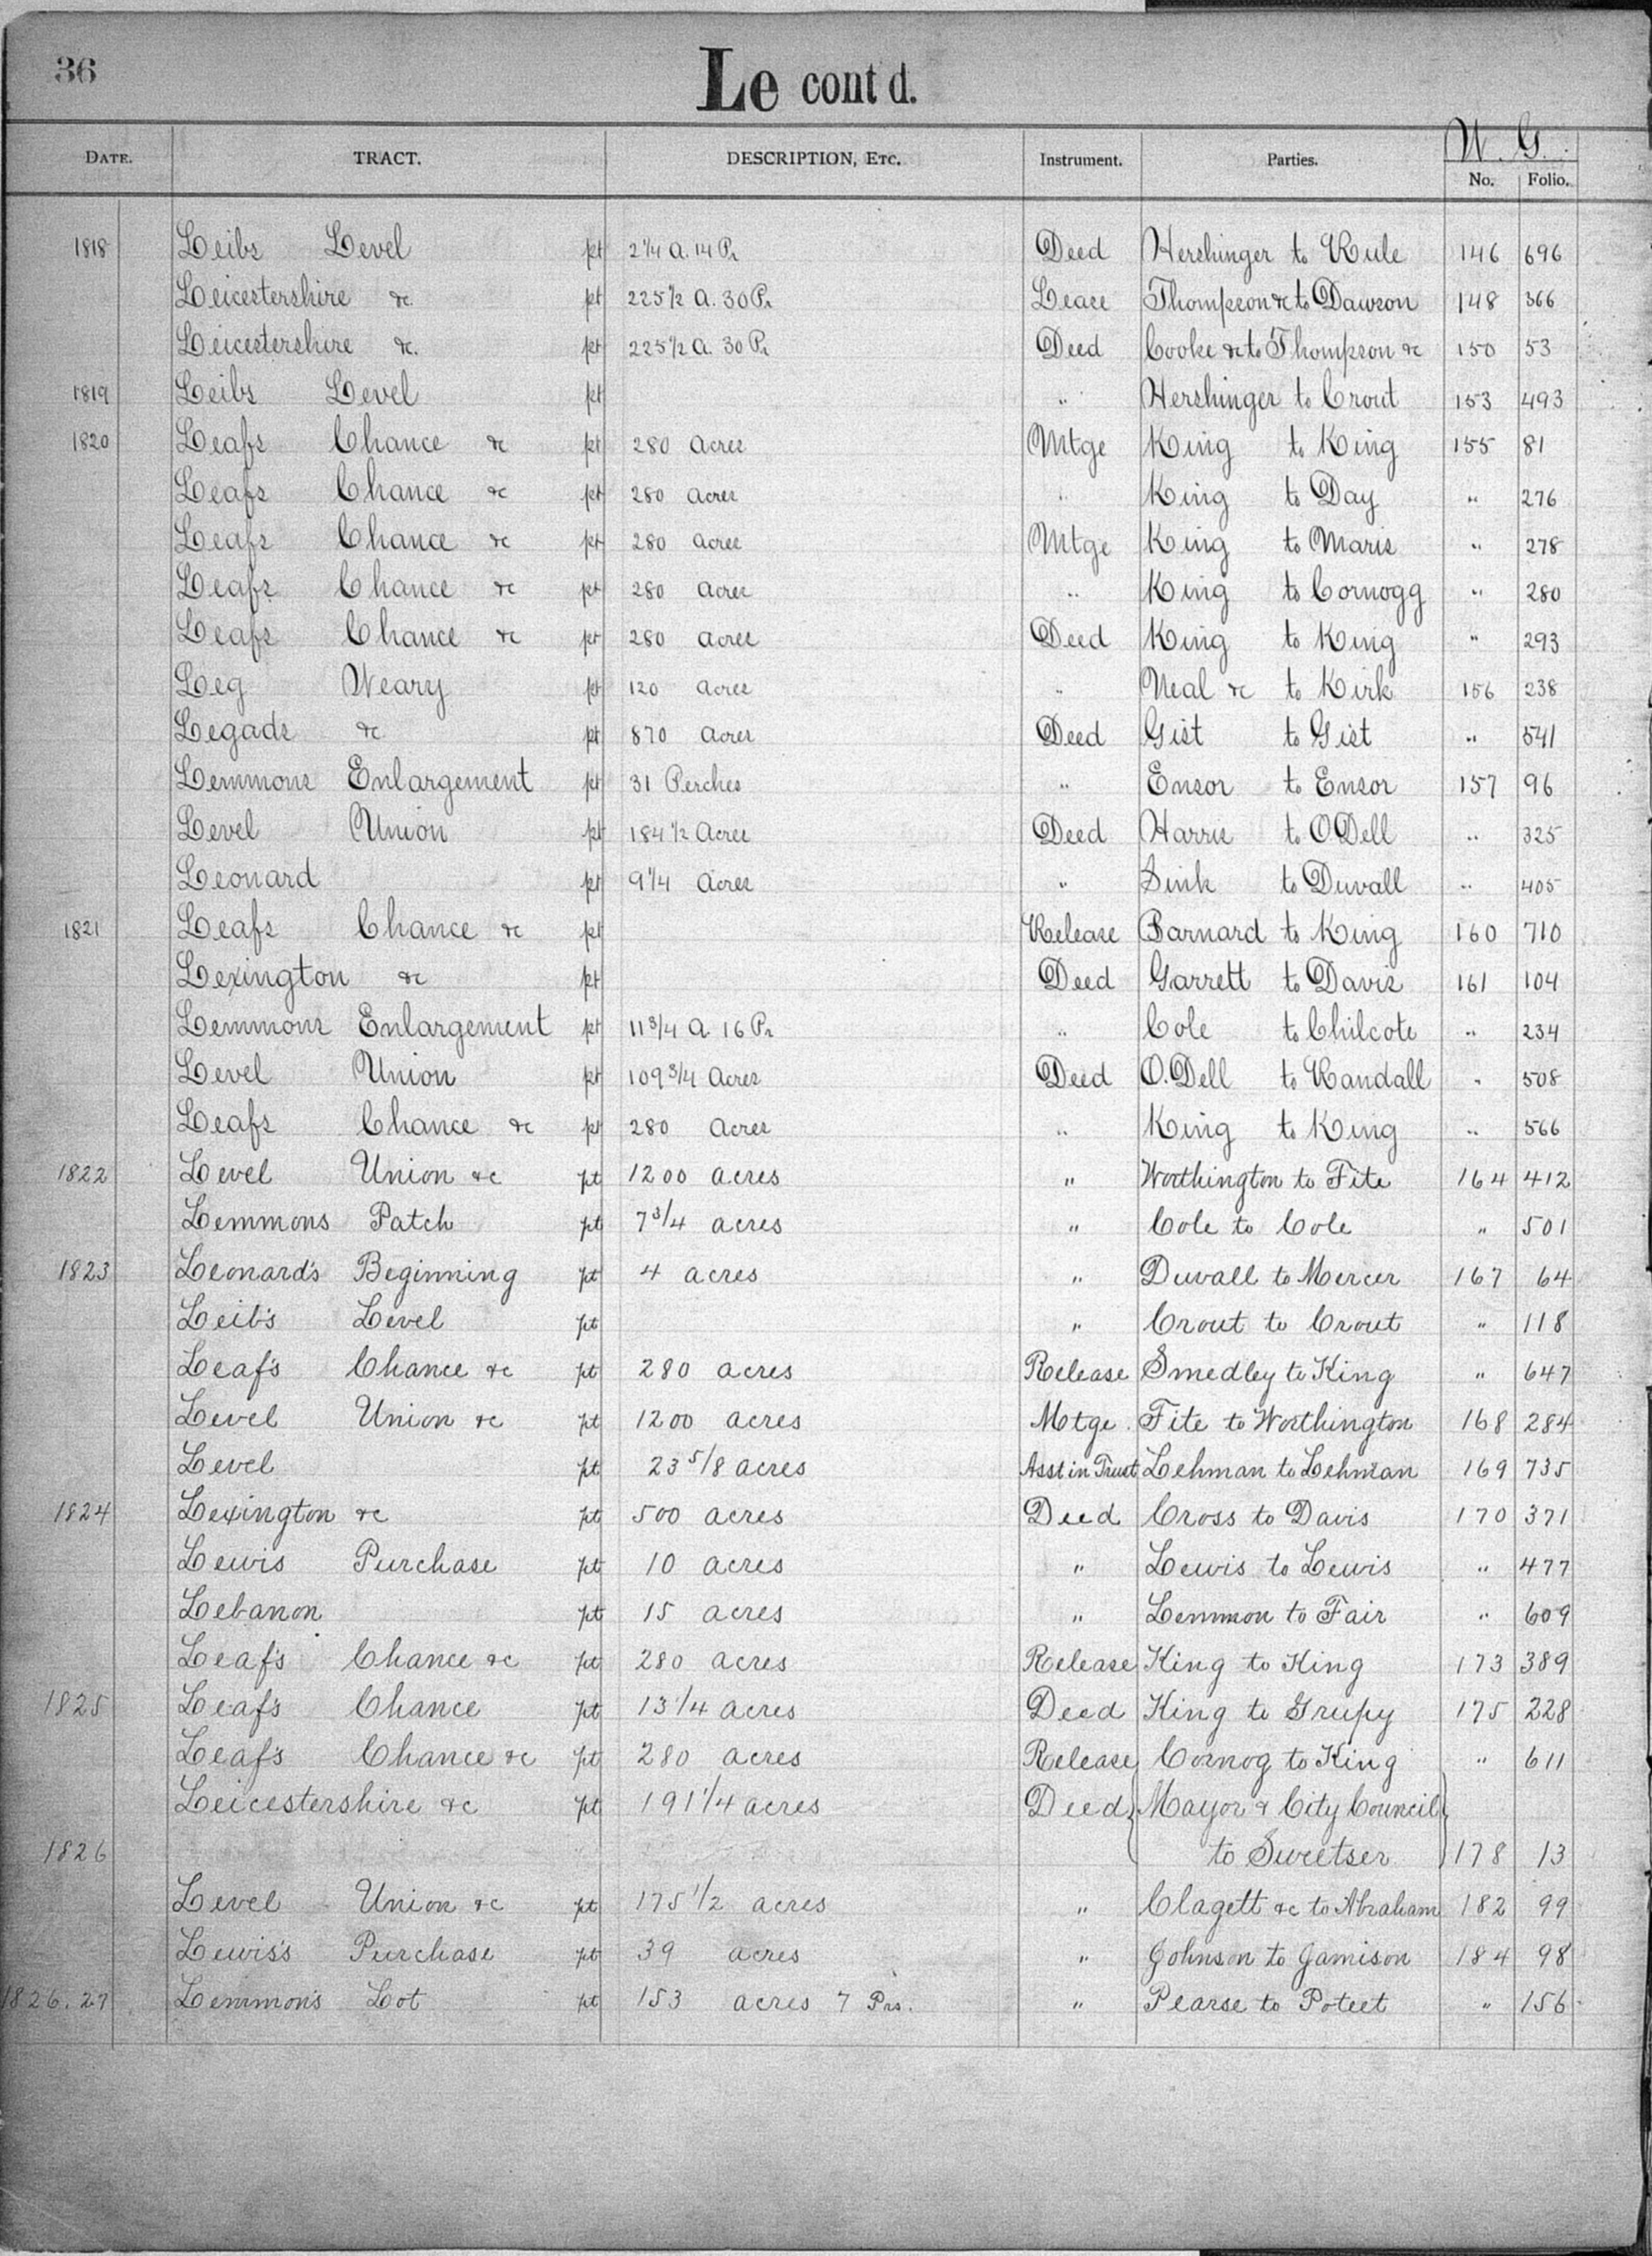 36
Le cont'd.
W. G.
DATE. TRACT. DESCRIPTION, ETC. Instrument. Parties. No. Folio.
1818 Leibs Level pt 2 1/4 a. 14 Pr Deed Hershinger to Rule 146 696
Leicestershire &c pt 225 1/2 a. 30 Pr Lease Thompson &c to Dawson 148 366
Leicestershire &c. pt 225 1/2 a. 30 Pr Deed Cooke &c to Thompson &c 150 53
1819 Leibs Level pt " Hershinger to Crout 153 493
1820 Leafs Chance &c pt 280 acres Mtge King to King 155 81
Leafs Chance &c pt 280 acres " King to Day " 276
Leafs Chance &c pt 280 acres Mtge King to Maris " 278
Leafs Chance &c pt 280 acres " King to Cornogg " 280
Leafs Chance &c pt 280 acres Deed King to King " 293
Leg Weary pt 120 acres " Neal &c to Kirk 156 238
Legads &c pt 870 acres Deed Gist to Gist " 541
Lemmons Enlargement pt 31 Perches " Ensor to Ensor 157 96
Level Union pt 184 1/2 acres Deed Harris to ODell " 325
Leonard pt 9 1/4 acres " Sink to Duvall " 405
1821 Leafs Chance &c pt Release Barnard to King 160 710
Lexington &c pt Deed Garrett to Davis 161 104
Lemmons Enlargement pt 11 3/4 a 16 Pr " Cole to Chilcote " 234
Level Union pt 109 3/4 acres Deed O.Dell to Randall " 508
Leafs Chance &c pt 280 acres " King to King " 566
1822 Level Union &c pt 1200 acres " Worthington to Fite 164 412
Lemmons Patch pt 7 3/4 acres " Cole to Cole " 501
1823 Leonard's Beginning pt 4 acres " Duvall to Mercer 167 64
Leib's Level pt " Crout to Crout " 118
Leaf's Chance &c pt 280 acres Release Smedley to King " 647
Level Union &c pt 1200 acres Mtge. Fite to Worthington 168 284
Level pt 23 5/8 acres Asst in Trust Lehman to Lehman 169 735
1824 Lexington &c pt 500 acres Deed Cross to Davis 170 371
Lewis Purchase pt 10 acres " Lewis to Lewis " 477
Lebanon pt 15 acres " Lemmon to Fair " 609
Leaf's Chance &c pt 280 acres Release King to King 173 389
1825 Leaf's Chance pt 13 1/4 acres Deed King to Grupy 175 228
Leaf's Chance &c pt 280 acres Release Cornog to King " 611
Leicestershire &c pt 191 1/4 acres Deed Mayor & City Council
1826 to Sweetser 178 13
Level Union &c pt 175 1/2 acres " Clagett &c to Abraham 182 99
Lewis's Purchase pt 39 acres " Johnson to Jamison 184 98
1826.27 Lemmon's Lot pt 153 acres 7 Prs. " Pearse to Poteet " 156